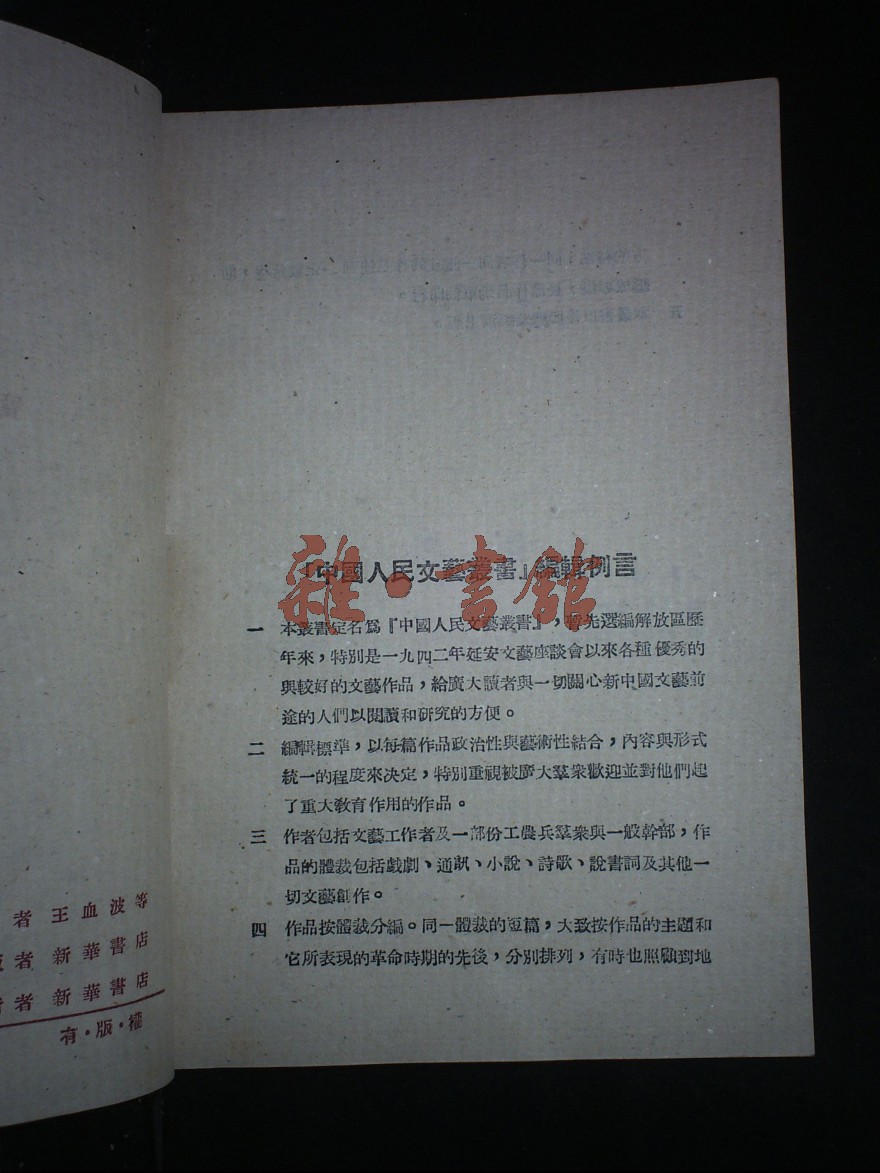 者 王血波等
者 新華書店
者 新華書店
有·版·權
『中國人民文藝叢書』編輯例言
一 本叢書定名爲『中國人民文藝叢書』,暫先選編解放區歷
年來,特別是一九四二年延安文藝座談會以來各種優秀的
與較好的文藝作品,給廣大讀者與一切關心新中國文藝前
途的人們以閱讀和研究的方便。
二 編輯標準,以每篇作品政治性與藝術性結合,內容與形式
統一的程度來決定,特別重視被廣大羣衆歡迎並對他們起
了重大教育作用的作品。
三 作者包括文藝工作者及一部份工農兵羣衆與一般幹部,作
品的體裁包括戲劇、通訊、小說、詩歌、說書詞及其他一
切文藝創作。
四 作品按體裁分編。同一體裁的短篇,大致按作品的主題和
它所表現的革命時期的先後,分別排列,有時也照顧到地
雜·書館